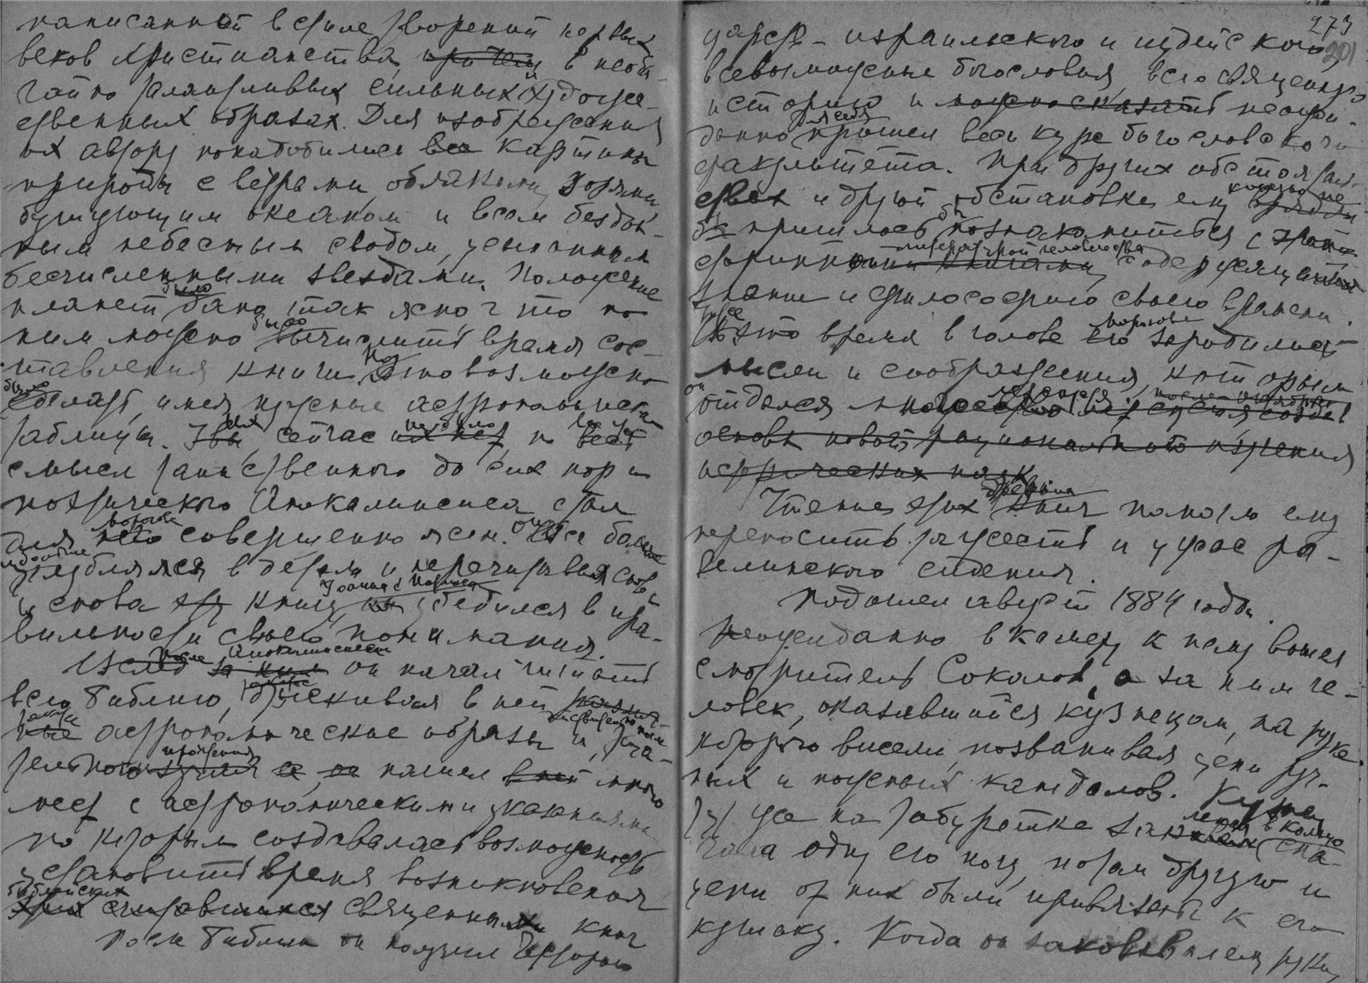 написанной в стиле творений первых
веков христианства, причем в необы-
чайно талантливых сильных и художе-
ственных образах. Для изображения
их автору понадобились все картины
природы с ветрами, облаками,
бушующим океаном и всем бездон-
ным небесным сводом, усеянным
бесчисленными звездами. Положение
планет было дано так ясно что по
ним можно было вычислить время сос-
тавления книги. Но это возможно
было имея нужные астрономические
таблицы. сейчас не было, но
смысл таинственного до сих пор и
поэтического Апокалипсиса стал
для него совершенно ясен. Он все более
углублялся в детали и перечитывая снова
и снова эту книгу Иоанна убедился в пра-
вильности своего понимания.
После Апокалипсиса он начал читать
всю Библию, отыскивая в ней
астрономические образы и
нашел много
мест с астрономическими указаниями
по которым создавалась возможность
установить время возникновения
библейских священных книг
После Библии он изучил историю
273
201
царств - израильского и иудейского
всевозможные богословия, всю священную
историю и можно сказать неожи-
данно для себя прошел весь курс богословского
факультета. При других обстоятель-
ствах и другой обстановке ему
бы пришлось познакомиться с этой
литературой человечества, содержащей
знание и философию своего времени.
В это время в голове его зародились
мысли и соображения, которым
он отдался
основы новой рационального изучения
исторических наук
Чтение этих древних книг помогло ему
переносить тяжесть и ужас ра-
велинского сидения.
Подошел август 1884 года.
Неожиданно в камеру к нему вошел
смотритель Соколов, а за ним че-
ловек, оказавшийся кузнецом, на руках
которого висели, позванивая цепи руч-
ных и ножных кандалов. Кузнец
тут же на табуретке заковал в кольцо сна-
чала одну его ногу, потом другую и
цепи от них были привязаны к его
кушаку. Когда он заковывал ему руки,